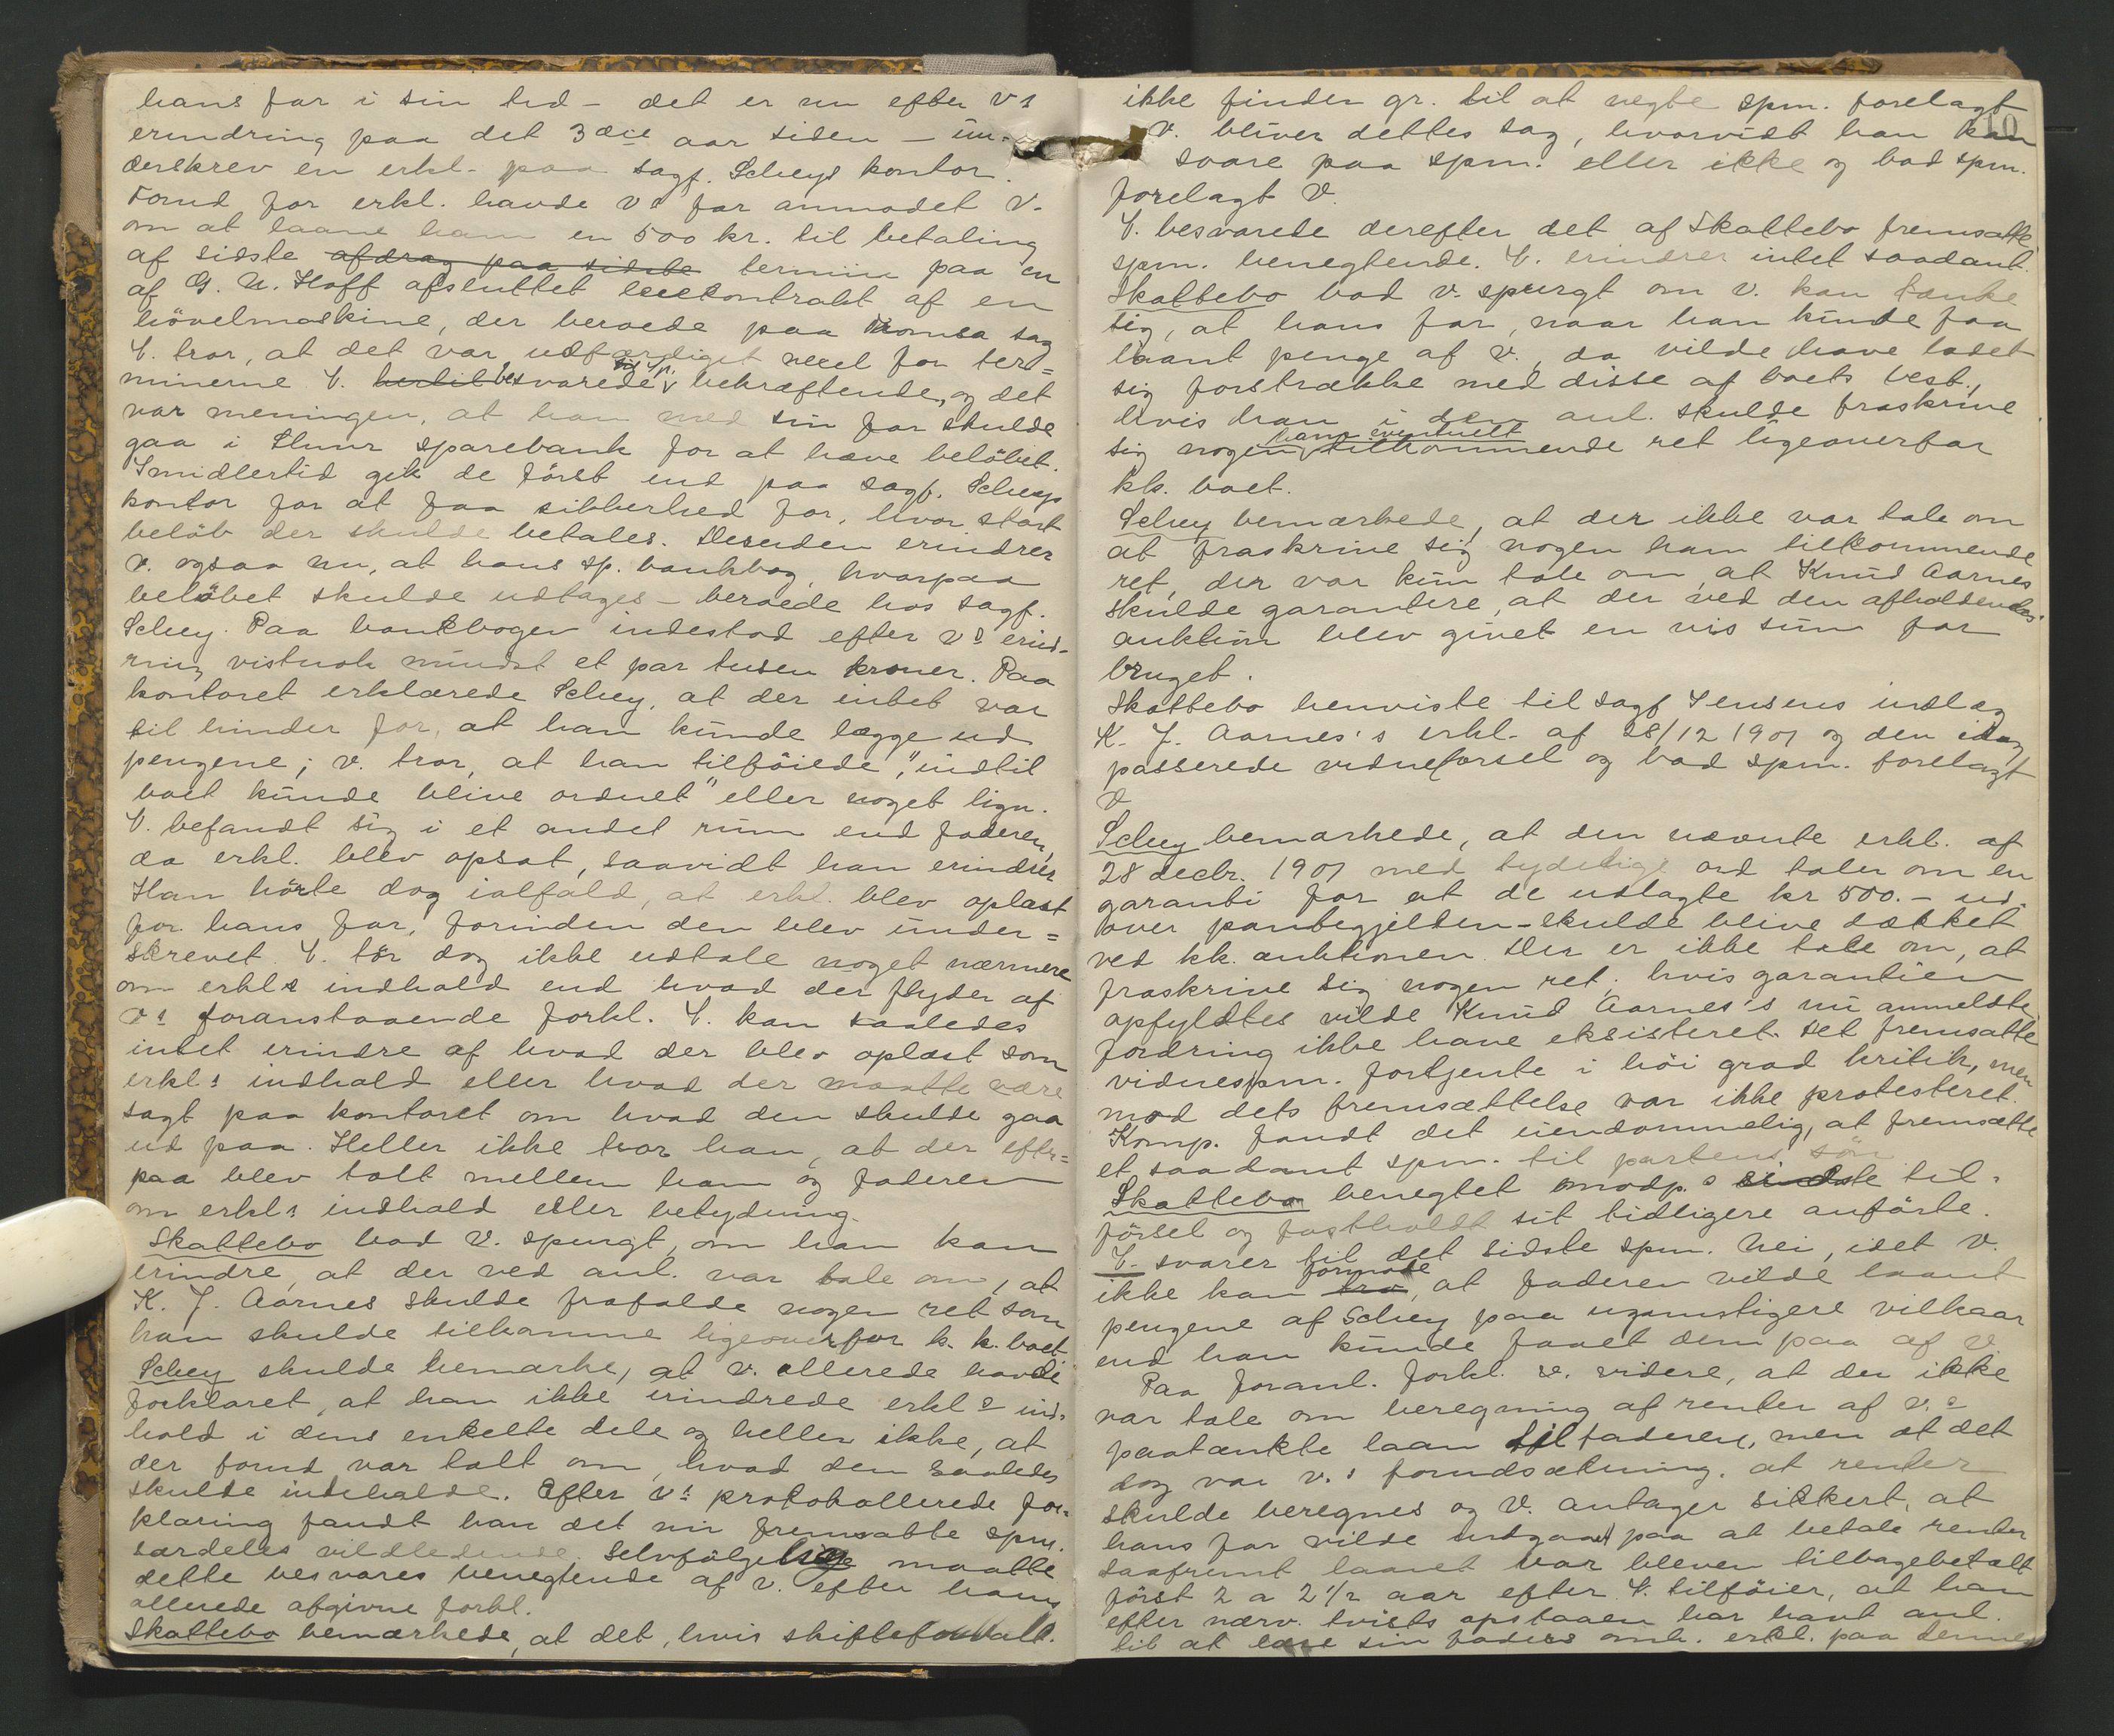 hans far i sin tid – det er nu efter vs
erindring paa det 3die aar siden – un-
derskrev en erkl. paa sagf. Scheys kontor.
Forud for erkl. havde vs far anmodet v.
om at laane ham en 500 kr. til betaling
af sidste afdrag paa sidste termin paa en
af G. N. Hoff afsluttet leiekontrakt af en
hövelmaskine, der beroede paa Tromsa sag
V. tror, at det var udfærdiget vexel for ter=
minerne V. hertil besvarede sp. bekræftende, og det
var meningen, at han med sin far skulde
gaa i sparebank for at hæve belöbet.
Imidlertid gik de först ind paa sagf. Scheys
kontor for at faa sikkerhed for, hvor stort
belöb der skulde betales. Desuden erindrer
v. ogsaa nu, at hans sp. bankbog, hvorpaa
belöbet skulde udtages – beroede hos sagf.
Schey. Paa bankbogen indestod efter vs erind-
ring vistnok mindst et par tusen kroner. Paa
kontoret erklærede Schey, at der intet var
til hinder for, at han kunde lægge ud
pengene; v. tror, at han tilföiede, "indtil
boet kunde blive ordnet" eller noget lign.
V. befandt sig i et andet rum end faderen,
da erkl. blev opsat, saavidt han erindrer
Han hörte dog ialfald, at erkl. blev oplæst
for hans far, forinden den blev under=
skrevet. V. tör dog ikke udtale noget nærmere
om erkls indhold end hvad der flyder af
vs foranstaaende forkl. V. kan saaledes
intet erindre af hvad der blev oplæst som
erkls indhold eller hvad der maatte være
sagt paa kontoret om hvad den skulde gaa
ud paa. Heller ikke tror han, at der efter=
paa blev talt mellem ham og faderen
om erkls indhold eller betydning.
Skattebo bad V. spurgt, om han kan
erindre, at der ved anl. var tale om, at
K. J. Aarnes skulde frafalde nogen ret som
han skulde tilkomme ligeoverfor k. k. boet
Schey skulde bemærke, at v. allerede havde
forklaret, at han ikke erindrede erkls ind-
hold i dens enkelte dele og heller ikke, at
der forud var talt om, hvad den saaledes
skulde indeholde. Efter vs protokollerede for=
klaring fandt han det nu fremsatte spm.
særdeles vildledende. Selvfölgelig maatte
dette besvares benegtende af v. efter hans
allerede afgivne forkl.
Skattebo bemærkede, at det, hvis skifteforvalt.
10
ikke finder gr. til at negte spm. forelagt
v. bliver dettes sag, hvorvidt han kan
svare paa spm. eller ikke og bad spm.
forelagt V.
V. besvarede derefter det af Skattebo fremsatte
spm. benegtende. V. erindrer intet saadant.
Skattebo bad v. spurgt om v. kan tænke
sig, at hans far, naar han kunde faa
laant penge af v., da vilde have ladet
sig forstrække med disse af boets best.,
hvis han i den anl. skulde fraskrive
sig nogen ham eventuelt tilkommende ret ligeoverfor
kk. boet.
Schey bemærkede, at der ikke var tale om
at fraskrive sig nogen ham tilkommende
ret, der var kun tale om, at Knud Aarnes
skulde garantere, at der ved den afholdendes
auktion blev givet en vis sum for
bruget.
Skattebo henviste til sagf Jensens indlæg
K. J. Aarnes's erkl. af 28/12 1901 og den idag
passerede vidneforsel og bad spm. forelagt
V
Schey bemærkede, at den nævnte erkl. af
28 decbr. 1901 med tydelige ord taler om en
garanti for at de udlagte kr 500.– ud-
over pantegjelden – skulde blive dækket
ved kk. auktionen. Der er ikke tale om, at
fraskrive sig nogen ret. hvis garantien
opfyldtes vilde Knud Aarnes's nu anmeldte
fordring ikke have eksisteret. Det fremsatte
vidnespm. fortjente i höi grad kritik, men
mod dets fremsættelse var ikke protesteret.
Komp. fandt det eiendommelig, at fremsætte
et saadant spm. til partens sön
Skattebo benegtet modp.s sidste til-
försel og fastholdt sit tidligere anförte.
V. svarer til det sidste spm. Nei, idet v.
ikke kan tro formode, at faderen vilde laant
pengene af Schey paa ugunstigere vilkaar
end han kunde faaet dem paa af V.
Paa foranl. forkl. v. videre, at der ikke
var tale om beregning af renter af v.s
paatænkte laan til faderen, men at det
dog var v.s forudsætning, at renter
skulde beregnes og V. antager sikkert, at
hans far vilde indgaaet paa at betale renter
saafremt laanet var bleven tilbagebetalt
först 2 a 2 1/2 aar efter. V. tilföier, at han
efter nærv. tvists opstaaen har havt anl.
til at læse sin faders omh. erkl. paa